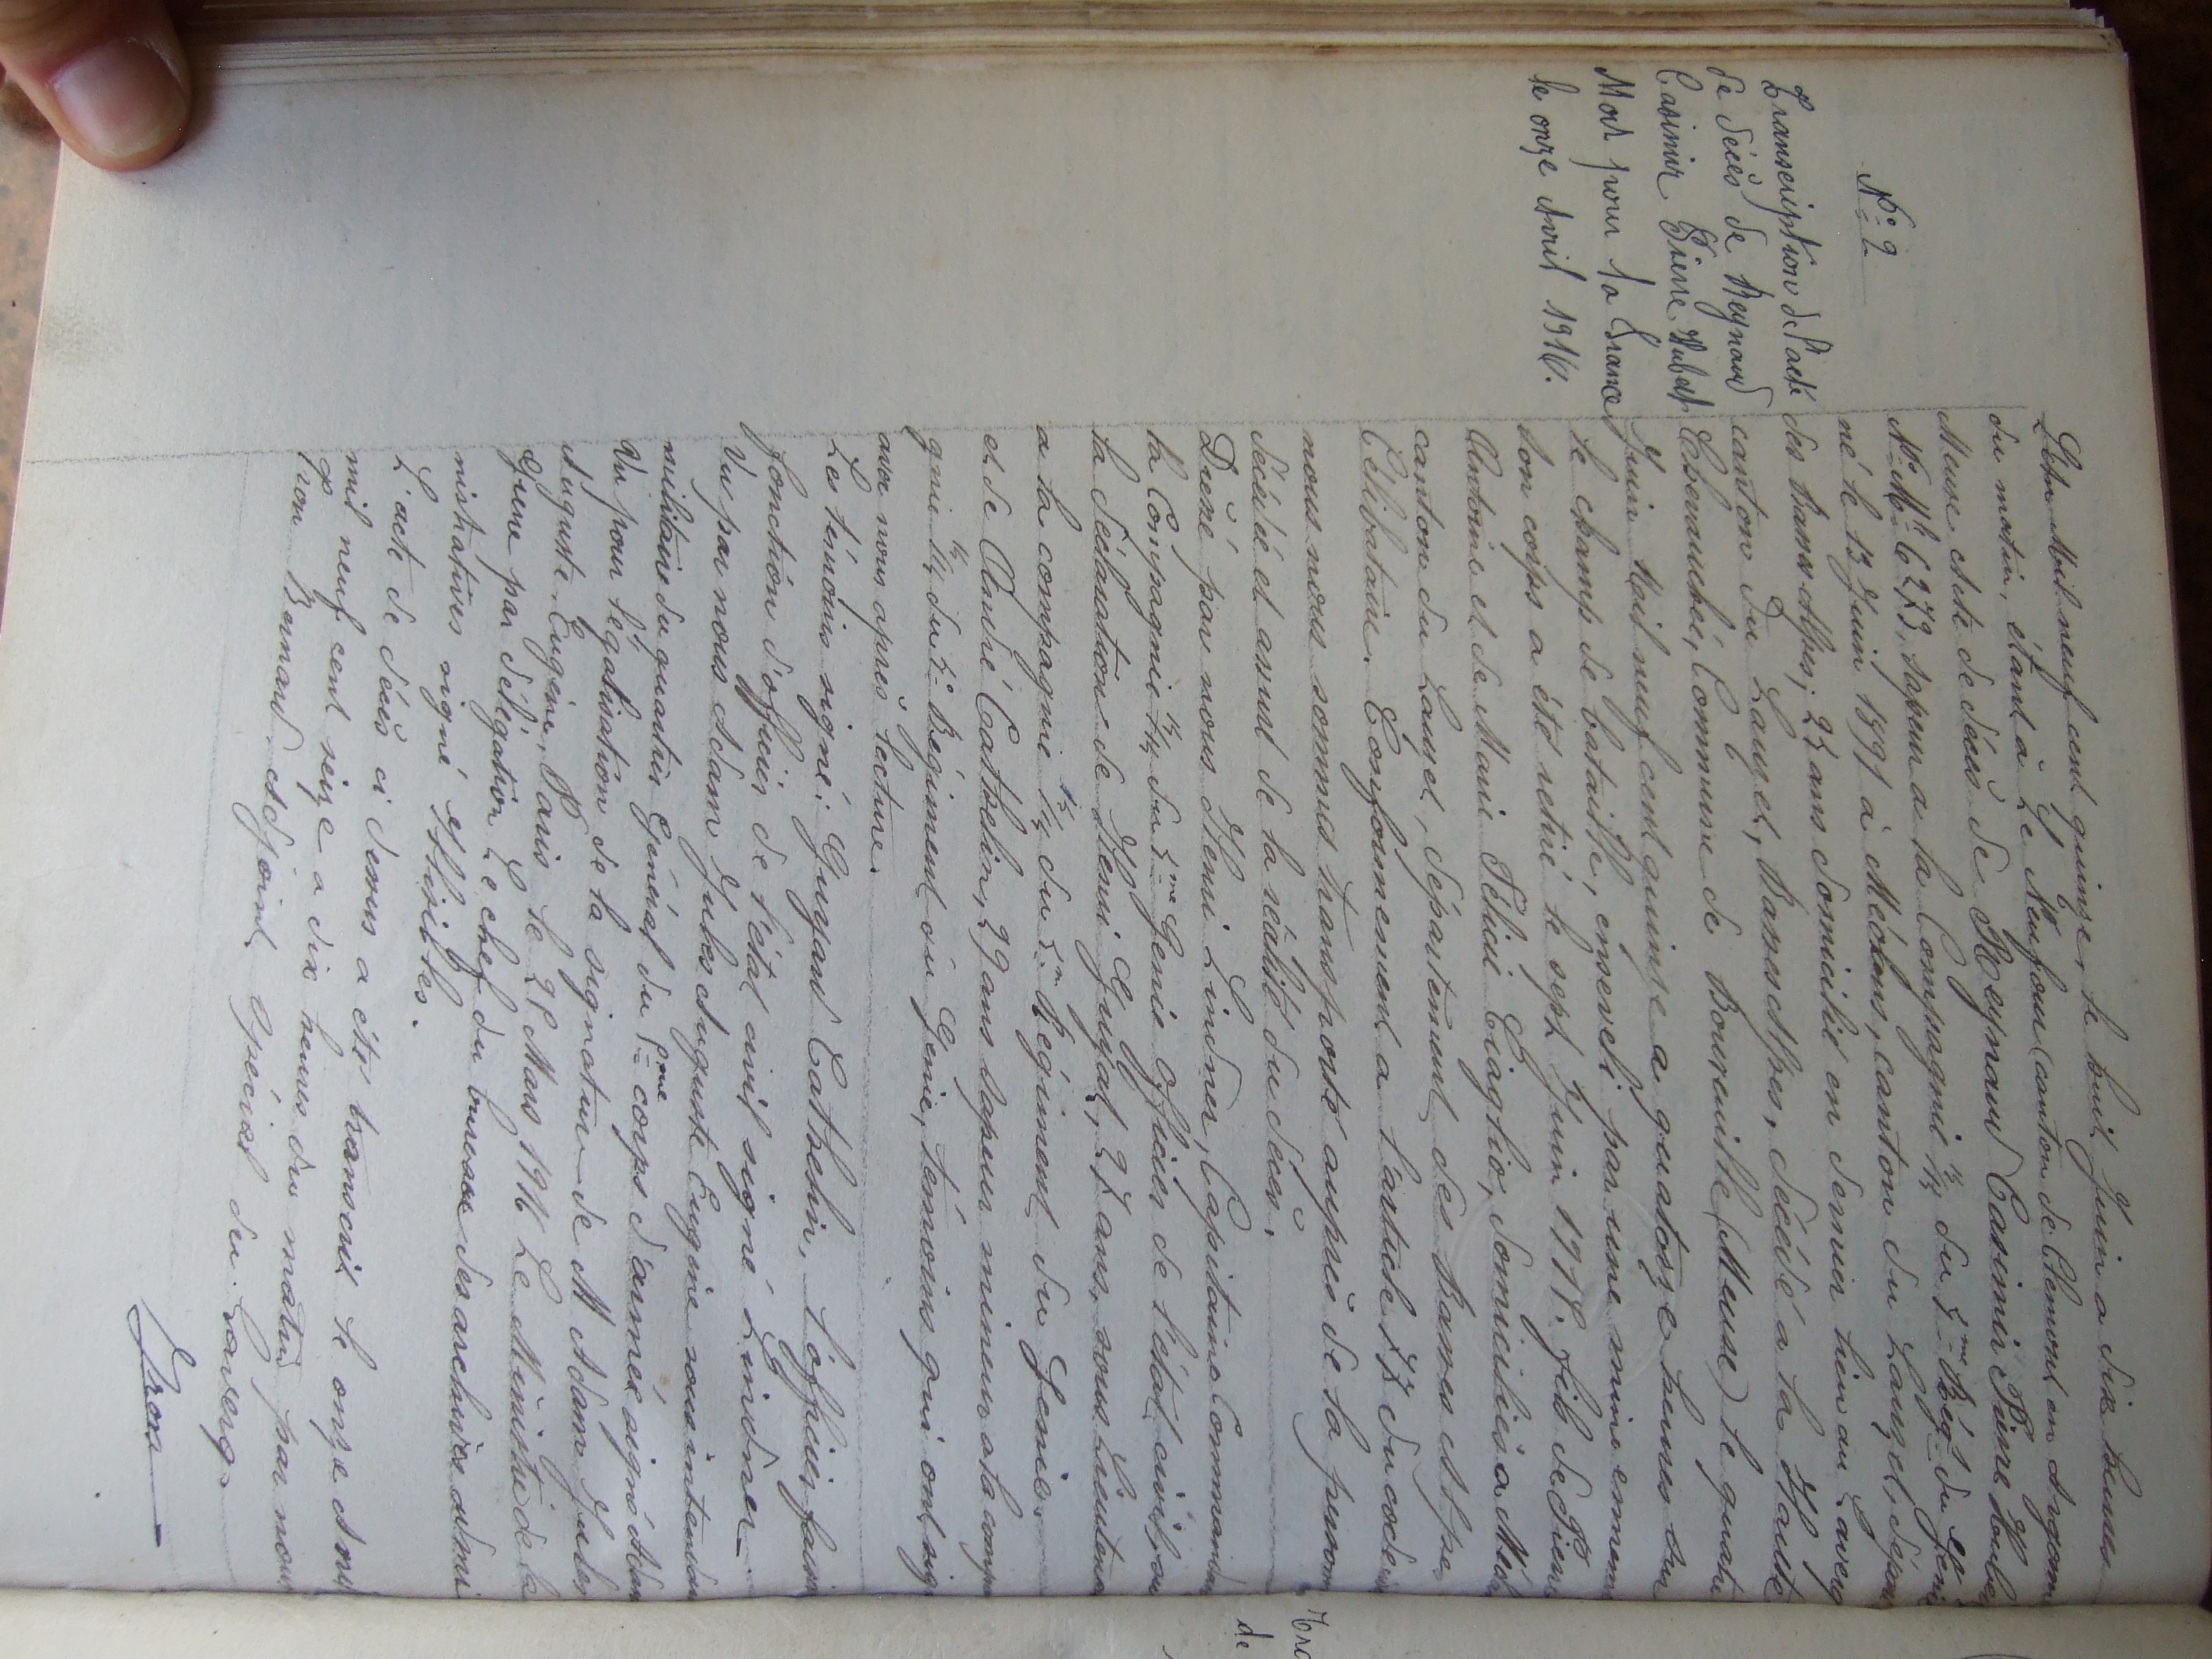 N° 2
Transcription de l'acte
de décès de Reynaud
Casimir Pierre Hubert
Mort pour la France
le onze Avril 1916.
L'an Mil neuf cent quinze, le huit Juin a dix heures
du matin, étant à Le Neufour (canton de Clermont en Argonne
Meuse acte de décès de Reynaud Casimir Pierre Hube
N° Mle 6273, sapeur a la Compagnie 15/14 du 7me Régt du Génie
né le 13 Juin 1891 à Méolans, canton du Lauzet, dépar
des Basses-Alpes, 23 ans domicilié en dernier lieu au Laverq
canton du Lauzet, Basses Alpes, décédé a la Haute
Chevauchée, Commune de Boureuille (Meuse) le quatre
Juin Mil neuf cent quinze a quatorze heures sur
le champ de bataille, enseveli par une mine ennem
son corps a été retiré le sept Juin 1915. fils de Pierre
Antoine et de Marie Félicie domiciliés a Méol
canton du Lauzet, département des Basses Alpes
Célibataire. Conformément a l'article 77 du code
nous nous sommes transporté auprès de la person
décédée et assuré de la réalité du décès.
Dréné par nous Henri Lindner, Capitaine Commanda
la Compagnie 15/14 du 7me Génie Officier de l'état civil, su
la déclaration de Henri Guigal, 27 ans, sous Lieutena
a la compagnie 15/14 du 7me Régiment du Génie.
et de André Cathelin, 29 ans sapeur mineur a la comp
genie 15/14 du 7e Régiment du Génie, témoins qui ont sig
avec nous après lecture.
Les témoins signé: Cathelin, l'officier faisa
fonction d'officier de l'état civil signé Lindner
Vu par nous Adam Jules Auguste Eugène sous intendan
militaire du quartier Général du 5me corps d'armée signé Adam
Vu pour légalisation de la signature de M Adam Jules
Auguste Eugène, Paris le 28 Mars 1916 Le Ministre de la
Guerre par délégation Le chef du bureau des archives admi
nistratives signé
L'acte de décès ci dessus a été transcrit le onze Avril
mil neuf cent seize a dix heures du matin par nous
Tron Bernard Adjoint Spécial du Laverq.
Tron
Tra
de